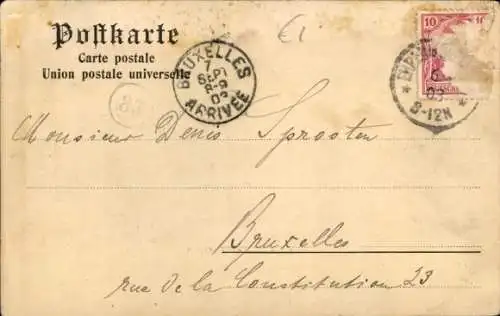 Postkarte
Carte postale
Union postale universelle
BRUXELLES
7
SEPT
8-9
ARRIVÉE
83
10
8-12N
Monsieur Denis Sprooten
Bruxelles
rue de la Constitution 23